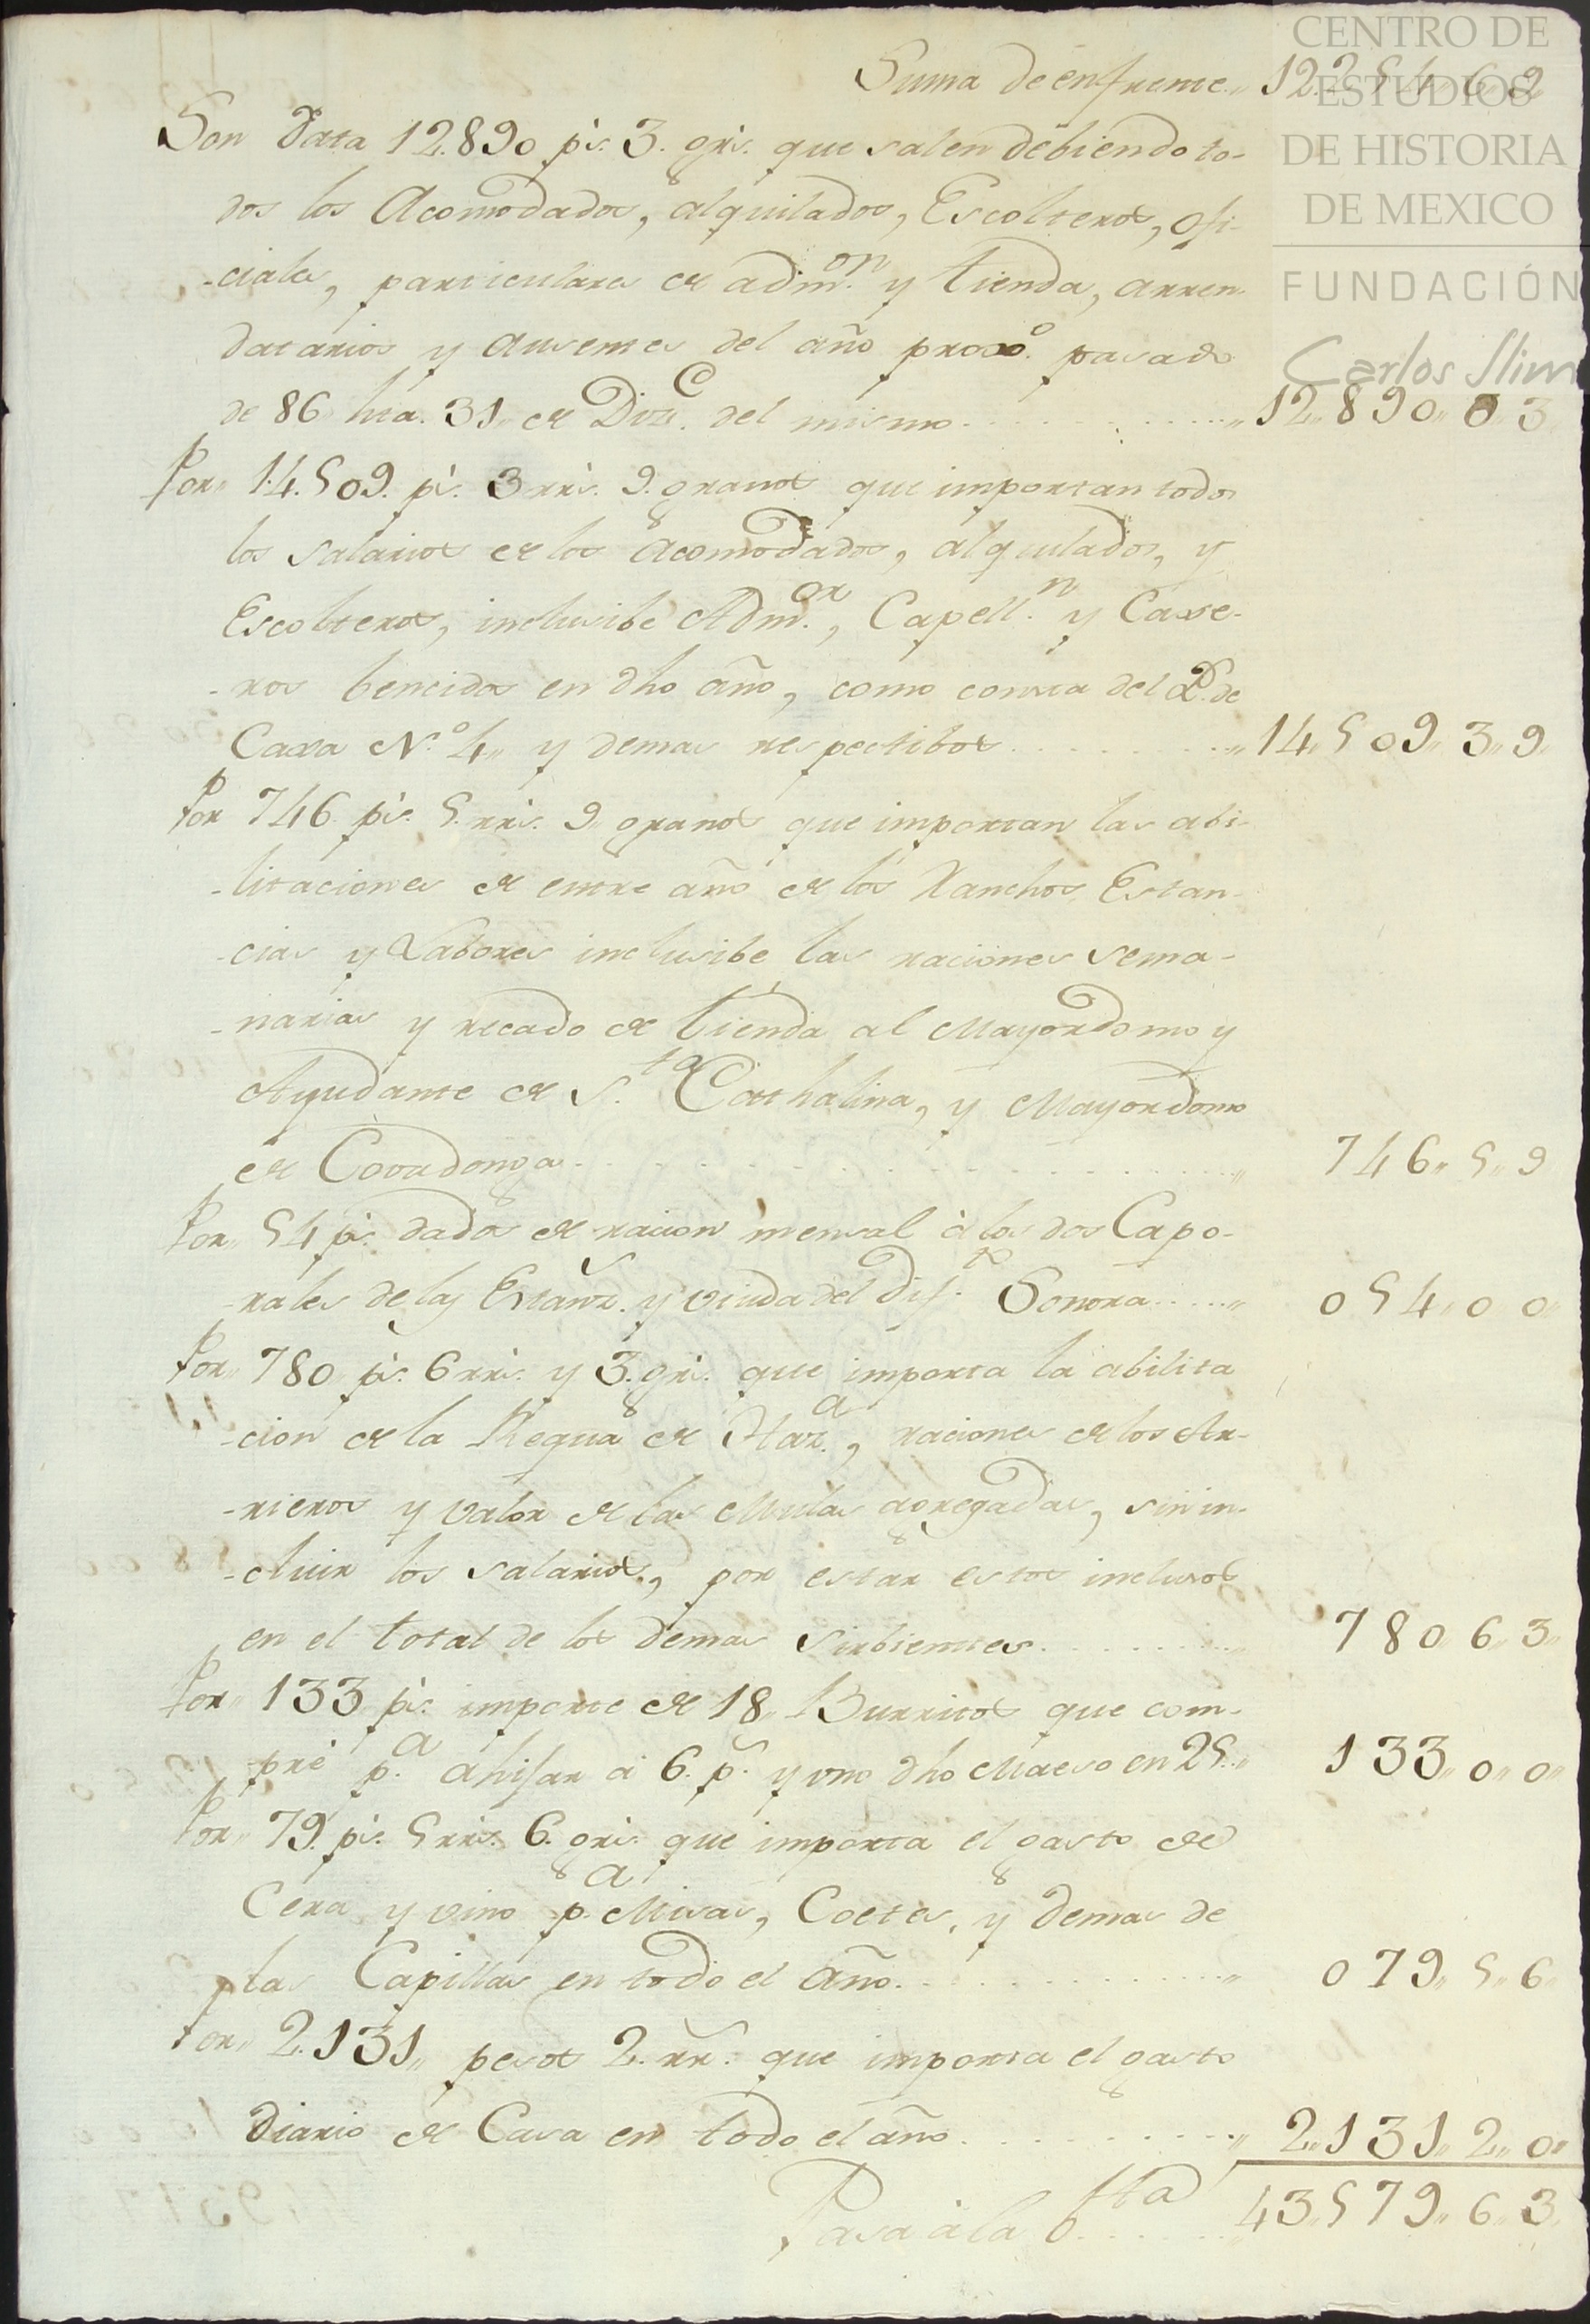 CENTRO DE
ESTUDIOS
DE HISTORIA
DE MEXICO
FUNDACIÓN
Carlos Slim
Suma de enfrente.. 12.254..6..9
Son Data 12.890 ps. 3. grs. que salen debiendo to-
dos los Acomodados, alquilados, Escolteros, ofi-
-ciales, particulares de admon. y tienda, arren-
datarios y ausentes del año proxo. pasado
de 86 hta. 31,, de Dize. del mismo..........,, 12..890..0..3
Por,, 14.509. ps. 3 rrs. 9. granos que importan todos
los salarios de los acomodados, alquilados, y
Escolteros, inclusibe Admor., Capelln. y Caxe-
-ros bencidos en dho año, como consta del L. de
Caxa N.º 4,, y demas respectibos..........,, 14..509..3..9
Por 746 ps. 5. rrs. 9 granos que importan las abi-
-litaciones de entre año de los Ranchos, Estan-
-cias y Labores inclusibe las raciones sema-
-narias y recado de tienda al Mayordomo y
Ayudante de Sta. Cathalina, y Mayordomo
de Covadonga..........,, 746..5..9
Por,, 54 ps. dados de racion mensal à los dos Capo-
-rales de las Estanzs. y viuda del difto. Sonora.....,, 054..0..0
Por,, 780 ps. 6 rrs. y 3. grs. que importa la abilita
-cion de la Requa de Haza., raciones de los Ar-
-rieros y valor de las Mulas agregadas, sin in-
-cluir los salarios, por estar estos inclusos
en el total de los demas sirbientes.........,, 780..6..3
Por,, 133 ps. importe de 18,, Burritos que com-
-pré pa. ahijar à 6. ps. y uno dho Maeso en 25..,, 133..0..0
Por,, 79. ps. 5 rrs. 6. grs. que importa el gasto de
Cera y vino pa. Misas, Coetes, y demas de
las Capillas en todo el año..........,, 079..5..6
Por,, 2.131,, pesos 2. rrs. que importa el gasto
Diario de Casa en todo el año..........,, 2..131..2..0
Pasa à la bta.......,, 43..579..6..3